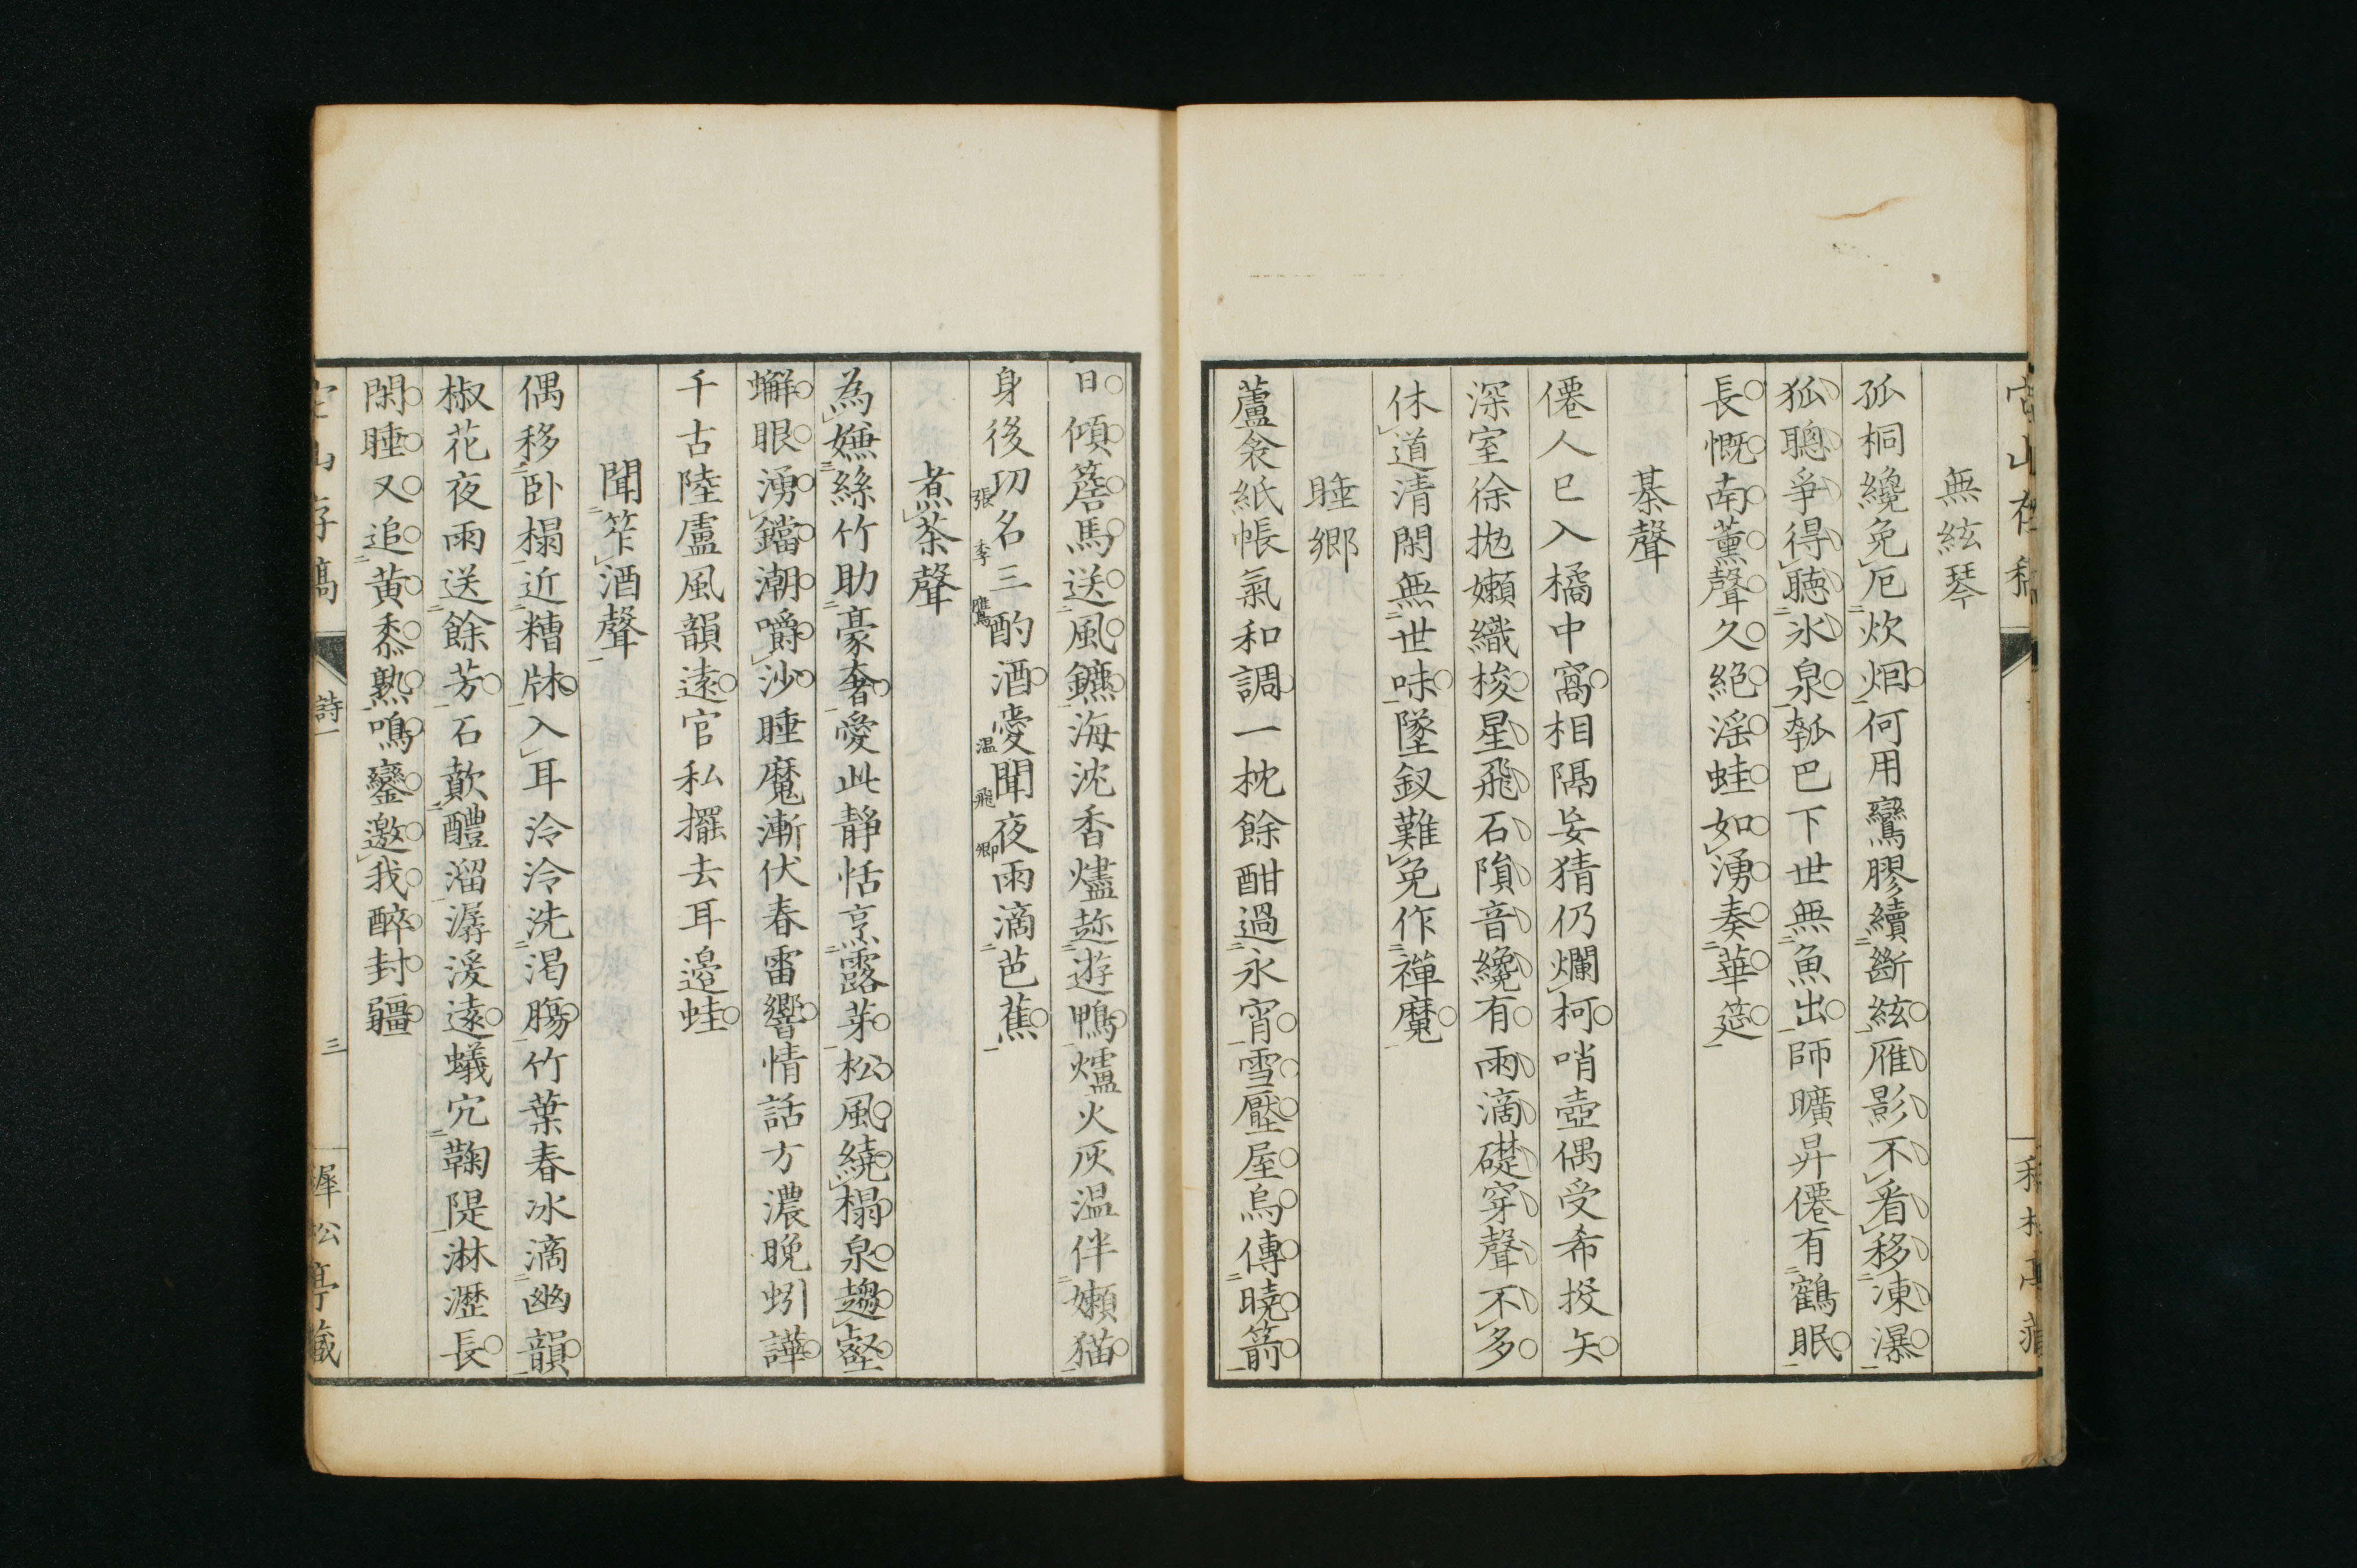 無絃琴
孤桐纔免厄炊烟何用鸞膠續斷絃雁影不看移凍瀑
狐聰爭得聽氷泉瓠巴下世無魚出師曠昇僊有鶴眠
長慨南薰聲久絕淫蛙如湧奏華筵
棊聲
僊人已入橘中窩相隔妄猜仍爛柯哨壺偶受希投矢
深室徐拋嬾織梭星飛石隕音纔有雨滴礎穿聲不多
休道清閑無世味墜釵難免作禪魔
睡鄉
蘆衾紙帳氣和調一枕餘酣過永宵雪壓屋烏傳曉箭
日傾簷馬送風鑣海沈香燼趂遊鴨爐火灰温伴嬾猫
身後功名三酌酒憂聞夜雨滴芭蕉
張 李 鷹 温 飛 卿
煮茶聲
為嫌絲竹助豪奢愛此靜恬烹露芽松風繞榻泉趨壑
蠏眼湧鐺潮嚼沙睡魔漸伏春雷響情話方濃晚蚓譁
千古陸盧風韻遠官私擺去耳邊蛙
聞笮酒聲
偶移臥榻近糟牀入耳泠泠洗渴膓竹葉春冰滴幽韻
椒花夜雨送餘芳石欹醴溜潺湲遠蟻穴鞠隄淋瀝長
閑睡又追黃黍熟鳴鑾邀我醉封疆
山存稿
詩一
三
松亭藏